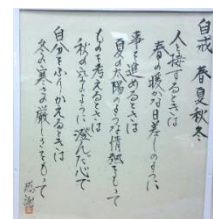 自戒 春夏秋冬
人と接するときは
春の暖かな日差しのように
事を進めるときは
夏の太陽のような情熱をもって
ものを考えるときは
秋の空のように澄んだ心で
自分をふりかえるときは
冬の寒さの厳しさをもって